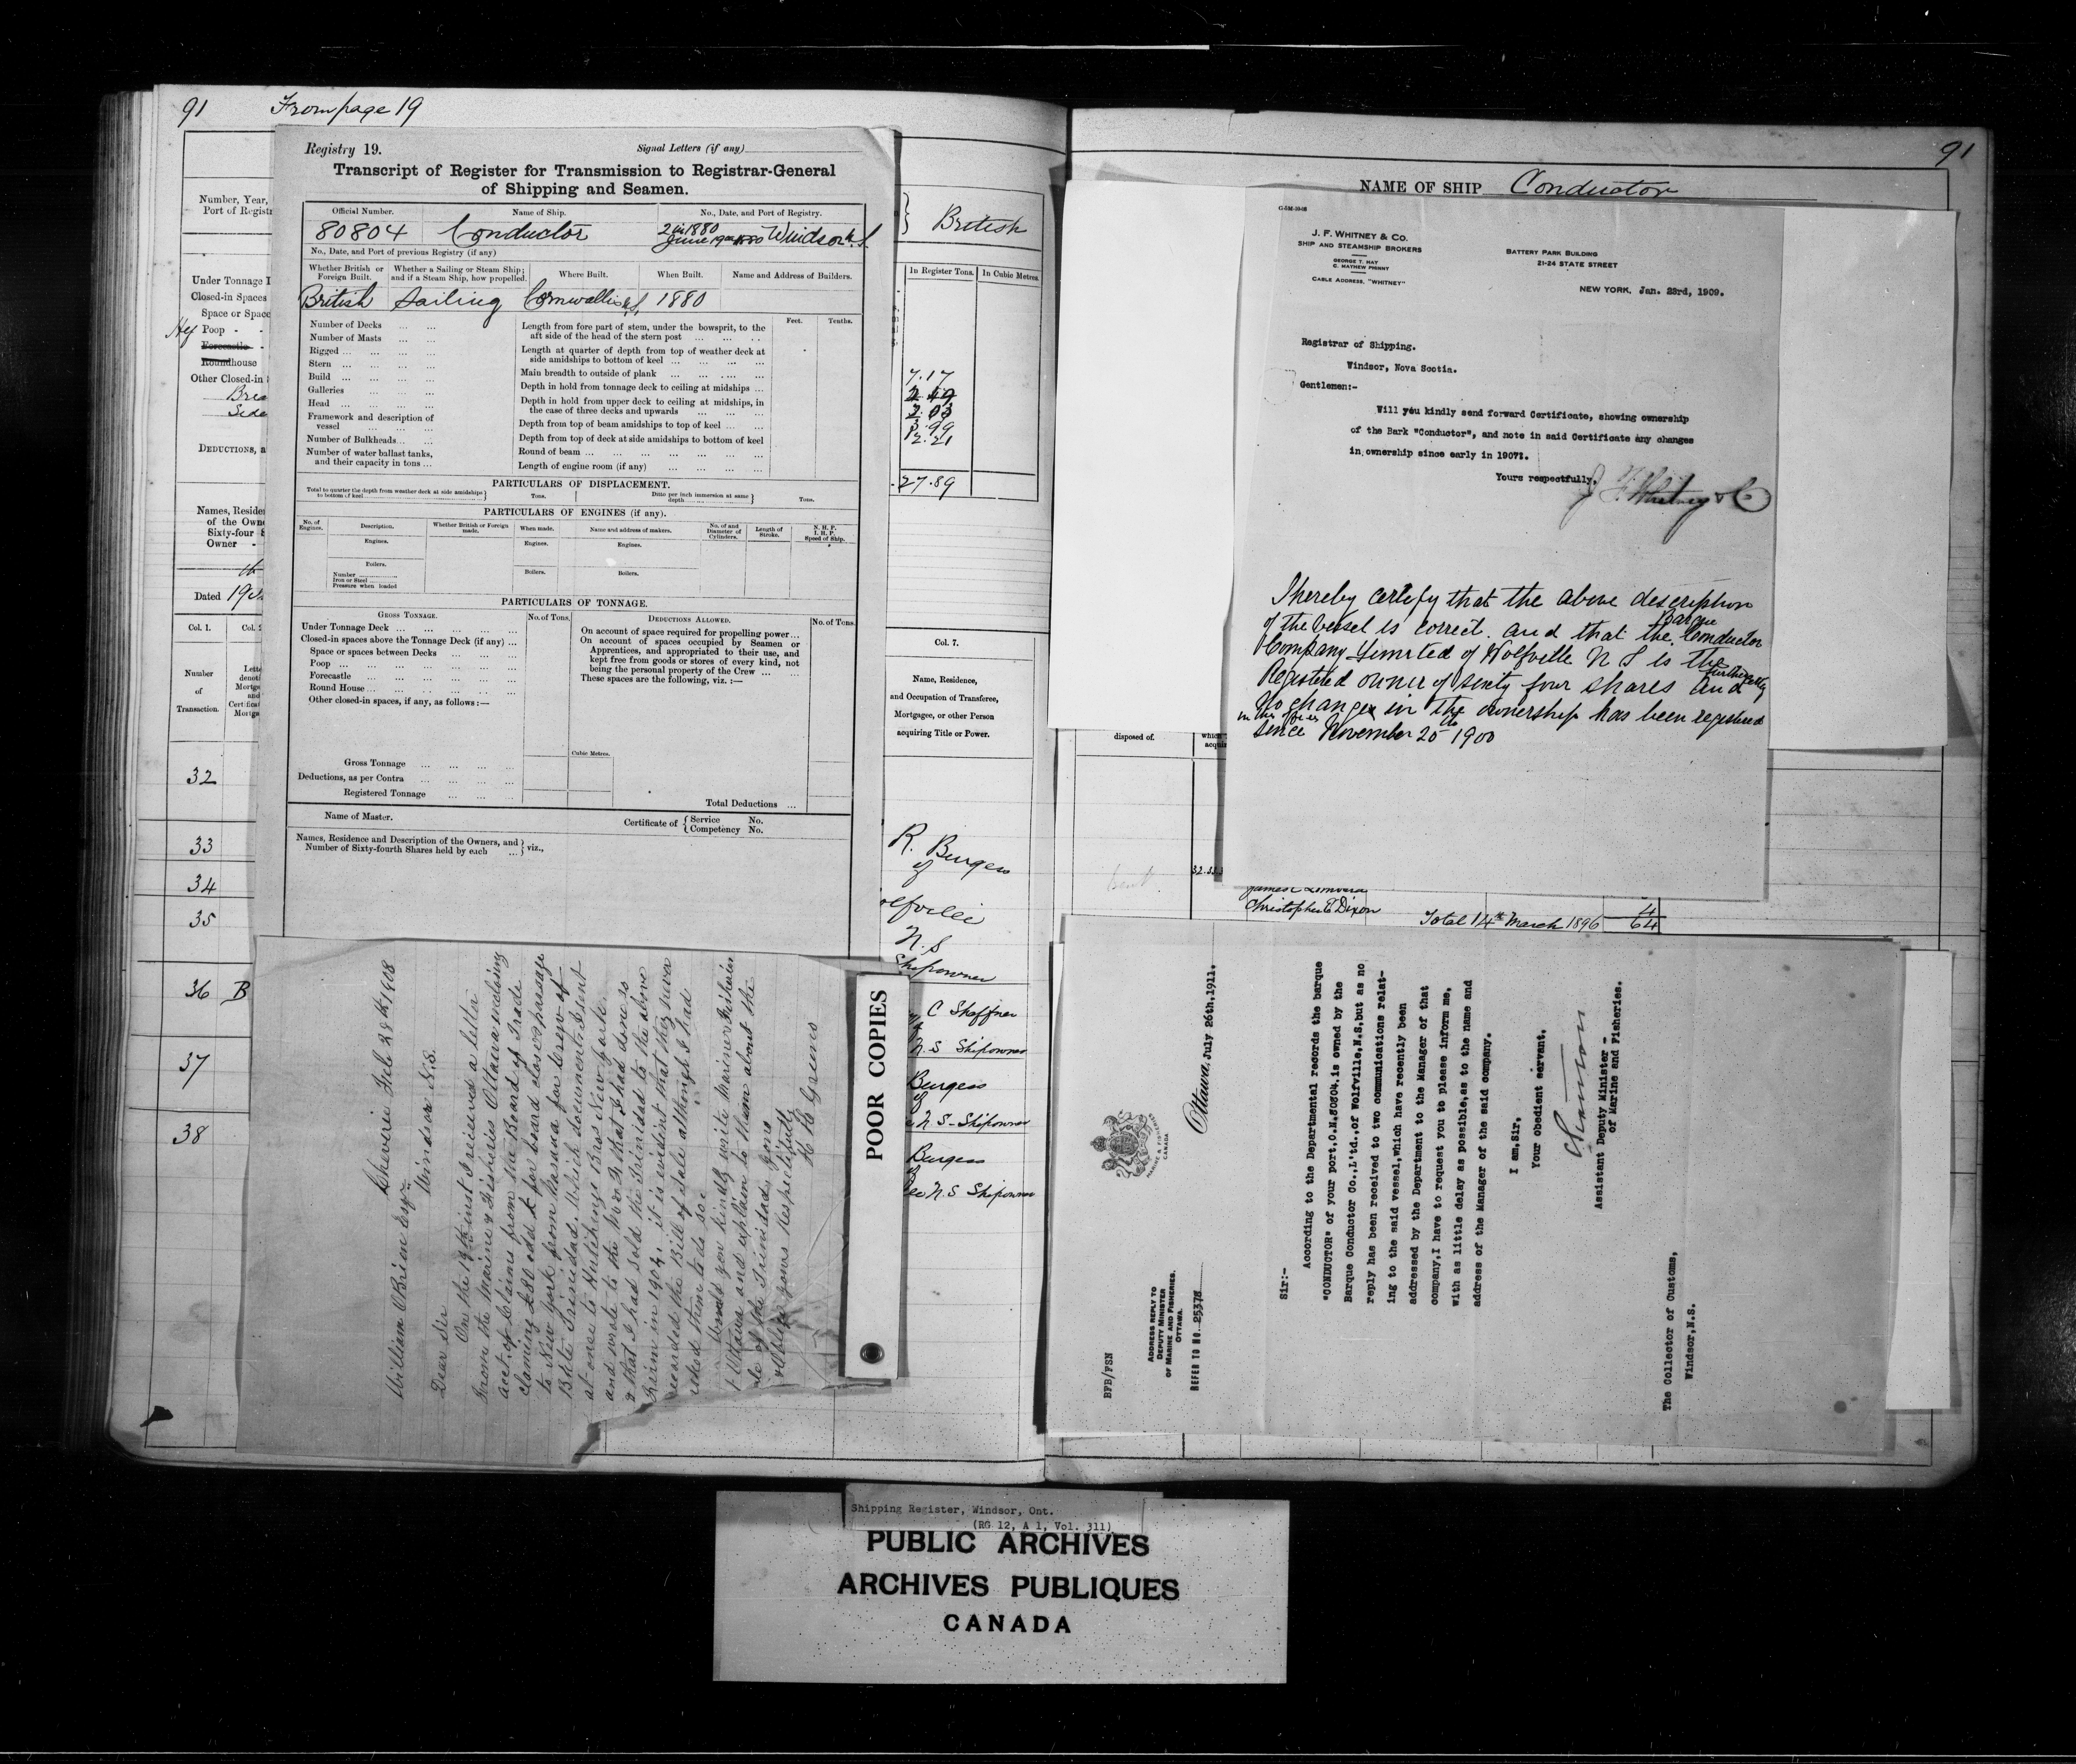 91 From page 19
Number, Year,
Port of Registr
Under Tonnage D
Closed-in Spaces
Space or Space
Poop - -
Forecastle -
Roundhouse
Other Closed-in
DEDUCTIONS, a
Names, Reside
of the Own
Sixty-four S
Owner -
Dated 19
Col. 1.
Number
of
Transaction.
32
33
34
35
36 B
37
38
Registry 19.
Signal Letters (if any)
Transcript of Register for Transmission to Registrar-General
of Shipping and Seamen.
Official Number. Name of Ship. No., Date, and Port of Registry.
80804 Conductor 2 in 1880
June 19th 1880 Windsor N.S.
No., Date, and Port of previous Registry (if any)
Whether British or Foreign Built. Whether a Sailing or Steam Ship; and if a Steam Ship, how propelled. Where Built. When Built. Name and Address of Builders.
British Sailing Cornwallis N.S. 1880
Feet. Tenths.
Number of Decks
Number of Masts
Rigged
Stern
Build
Galleries
Head
Framework and description of
vessel
Number of Bulkheads
Number of water ballast tanks,
and their capacity in tons
Length from fore part of stem, under the bowsprit, to the
aft side of the head of the stern post
Length at quarter of depth from top of weather deck at
side amidships to bottom of keel
Main breadth to outside of plank
Depth in hold from tonnage deck to ceiling at midships
Depth in hold from upper deck to ceiling at midships, in
the case of three decks and upwards
Depth from top of beam amidships to top of keel
Depth from top of deck at side amidships to bottom of keel
Round of beam
Length of engine room (if any)
PARTICULARS OF DISPLACEMENT.
Total to quarter the depth from weather deck at side amidships
to bottom of keel Tons. Ditto per inch immersion at same
depth Tons.
PARTICULARS OF ENGINES (if any).
No. of Engines. Description. Whether British or Foreign made. When made. Name and address of makers. No. of and Diameter of Cylinders. Length of Stroke. N. H. P. I. H. P. Speed of Ship.
Engines. Engines. Engines.
Boilers.
Number
Iron or Steel
Pressure when loaded
Boilers. Boilers.
PARTICULARS OF TONNAGE.
GROSS TONNAGE. No. of Tons. DEDUCTIONS ALLOWED. No. of Tons.
Under Tonnage Deck
Closed-in spaces above the Tonnage Deck (if any)
Space or spaces between Decks
Poop
Forecastle
Round House
Other closed-in spaces, if any, as follows:—
On account of space required for propelling power
On account of spaces occupied by Seamen or
Apprentices, and appropriated to their use, and
kept free from goods or stores of every kind, not
being the personal property of the Crew
These spaces are the following, viz. :—
Cubic Metres.
Gross Tonnage
Deductions, as per Contra
Registered Tonnage
Total Deductions
Name of Master. Certificate of Service No.
Competency No.
Names, Residence and Description of the Owners, and
Number of Sixty-fourth Shares held by each viz.,
British
In Register Tons. In Cubic Metres.
7.17
27.89
Col. 7.
Name, Residence,
and Occupation of Transferee,
Mortgagee, or other Person
acquiring Title or Power.
R. Burgess
of
N.S
Shipowner
C Shaffner
N.S Shipowner
Burgess
of
N S - Shipowner
Burgess
of
N.S Shipowner
Cheverie Feb 28th 1908
William OBrien Esqr
Windsor N.S.
Dear Sir
On the 19th inst I received a letter
from the Marine & Fisheries Ottawa enclosing
acct of Claims from the Board of Trade
claiming £20 odd for board clothes passage
to New York from Nassau for Crew of
Bktn Trinidad. Which document I sent
at once to Hutchings Bros New York
and wrote to the M & F that I had done so
& that I had sold the Trinidad to the above
Firm in 1904. it is evident that they never
recorded the Bill of Sale although I had
asked them to do so.
Would you kindly write Marine & Fisheries
Ottawa and explain to them about the
sale of the Trinidad
& Oblige yours Respectfully
POOR COPIES
91
NAME OF SHIP Conductor
G-5M-10-08
J. F. WHITNEY & CO.
SHIP AND STEAMSHIP BROKERS
GEORGE T. HAY
C. MATHEW PHINNY
CABLE ADDRESS, "WHITNEY"
BATTERY PARK BUILDING
21-24 STATE STREET
NEW YORK, Jan. 23rd, 1909.
Registrar of Shipping.
Windsor, Nova Scotia.
Gentlemen:-
Will you kindly send forward Certificate, showing ownership
of the Bark "Conductor", and note in said Certificate any changes
in ownership since early in 1907.
Yours respectfully,
J. F. Whitney & Co
I hereby certify that the above description
of the vessel is correct. and that the Barque Conductor
Company Limited of Wolfville N S is the
Registered owner of sixty four shares and further that
No change in the ownership has been registered
in this office since November 20th 1900
disposed of.
Christopher E Dixon
Total 14th March 1896 64
Ottawa, July 26th, 1911.
MARINE & FISHERIES
CANADA
BFB/FSN
ADDRESS REPLY TO
DEPUTY MINISTER
OF MARINE AND FISHERIES,
OTTAWA.
REFER TO NO. 25378
Sir:-
According to the Departmental records the barque
"CONDUCTOR" of your port,O.N.80804,is owned by the
Barque Conductor Co.,L'td.,of Wolfville,N.S,but as no
reply has been received to two communications relat-
ing to the said vessel,which have recently been
addressed by the Department to the Manager of that
company,I have to request you to please inform me,
with as little delay as possible,as to the name and
address of the Manager of the said company.
I am,Sir,
Your obedient servant.
Assistant Deputy Minister -
of Marine and Fisheries.
The Collector of Customs,
Windsor,N.S.
Shipping Register, Windsor, Ont.
(RG 12, A 1, Vol. 311)
PUBLIC ARCHIVES
ARCHIVES PUBLIQUES
CANADA